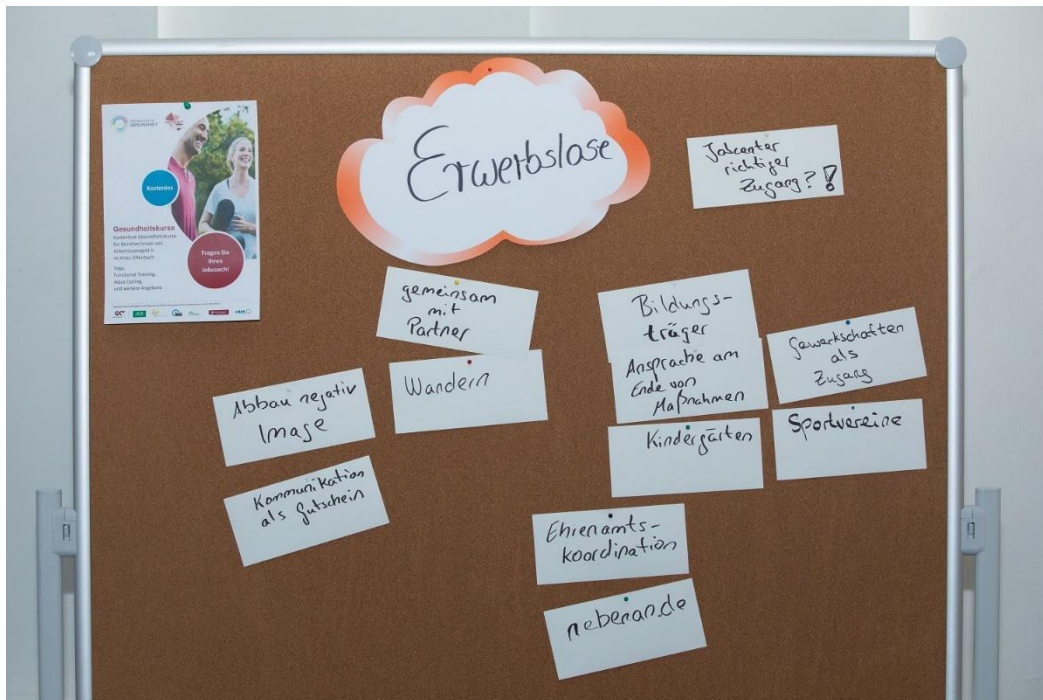 GESUNDHEIT
Kostenlos
Gesundheitskurse
Kostenlose Gesundheitskurse
für Bezieher/innen von
Arbeitslosengeld II
im Kreis Offenbach
Yoga,
Functional Training,
Aqua Cycling,
und weitere Angebote
Fragen Sie
Ihren
Jobcoach!
Erwerbslose
Jobcenter
richtiger
Zugang?!
gemeinsam
mit
Partner
Wandern
Abbau negativ
Image
Kommunikation
als Gutschein
Bildungs-
träger
Ansprache am
Ende von
Maßnahmen
Kindergärten
Gewerkschaften
als
Zugang
Sportvereine
Ehrenamts-
koordination
nebenan.de